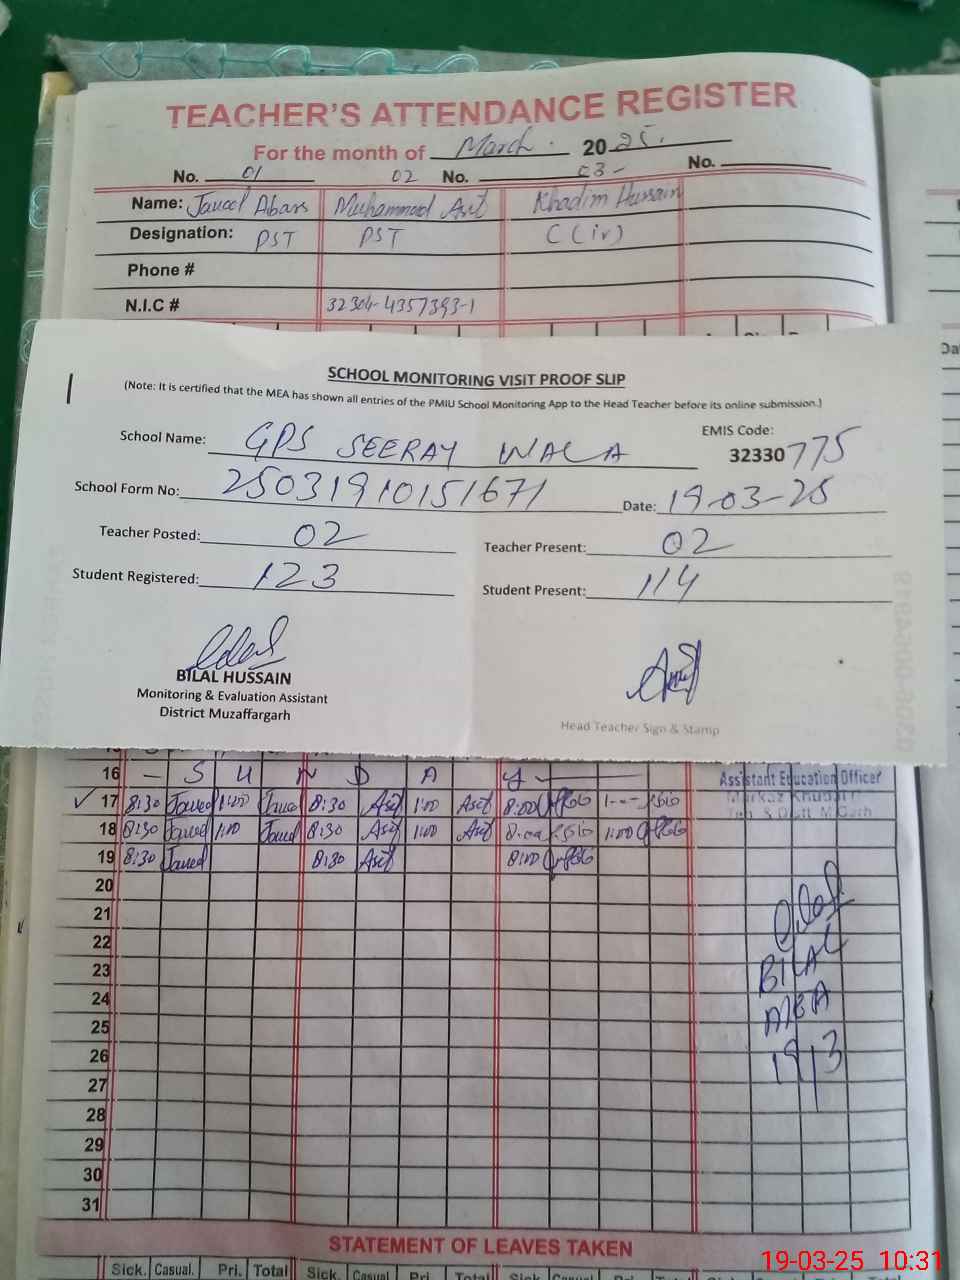 TEACHER'S ATTENDANCE REGISTER
For the month of March. 2025.
No. 01 02 No. 03- No.
Name: Javed Abars Muhammad Asif Khadim Hussain
Designation: PST PST C(iv)
Phone #
N.I.C # 32304-4357393-1
SCHOOL MONITORING VISIT PROOF SLIP
(Note: It is certified that the MEA has shown all entries of the PMIU School Monitoring App to the Head Teacher before its online submission.)
School Name: GPS SEERAY WALA
EMIS Code:
32330775
School Form No: 25031910151671 Date: 19-03-25
Teacher Posted: 02 Teacher Present: 02
Student Registered: 123 Student Present: 114
BILAL HUSSAIN
Monitoring & Evaluation Assistant
District Muzaffargarh
Head Teacher Sign & Stamp
16 - S U N D A Y -
Assistant Education Officer
17 8:30 Javed 1:00 Javed 8:30 Asif 1:00 Asif 8:00
18 8:30 Javed 1:00 Javed 8:30 Asif 1:00 Asif 8:00 1:00
19 8:30 Javed 8:30 Asif 8:00
20
21
22
23
24
25
26
27
28
29
30
31
BILAL
MEA
19/3
STATEMENT OF LEAVES TAKEN
Sick. Casual. Pri. Total Sick. Casual Pri. Total Sick Casual Pri. Total
19-03-25 10:31